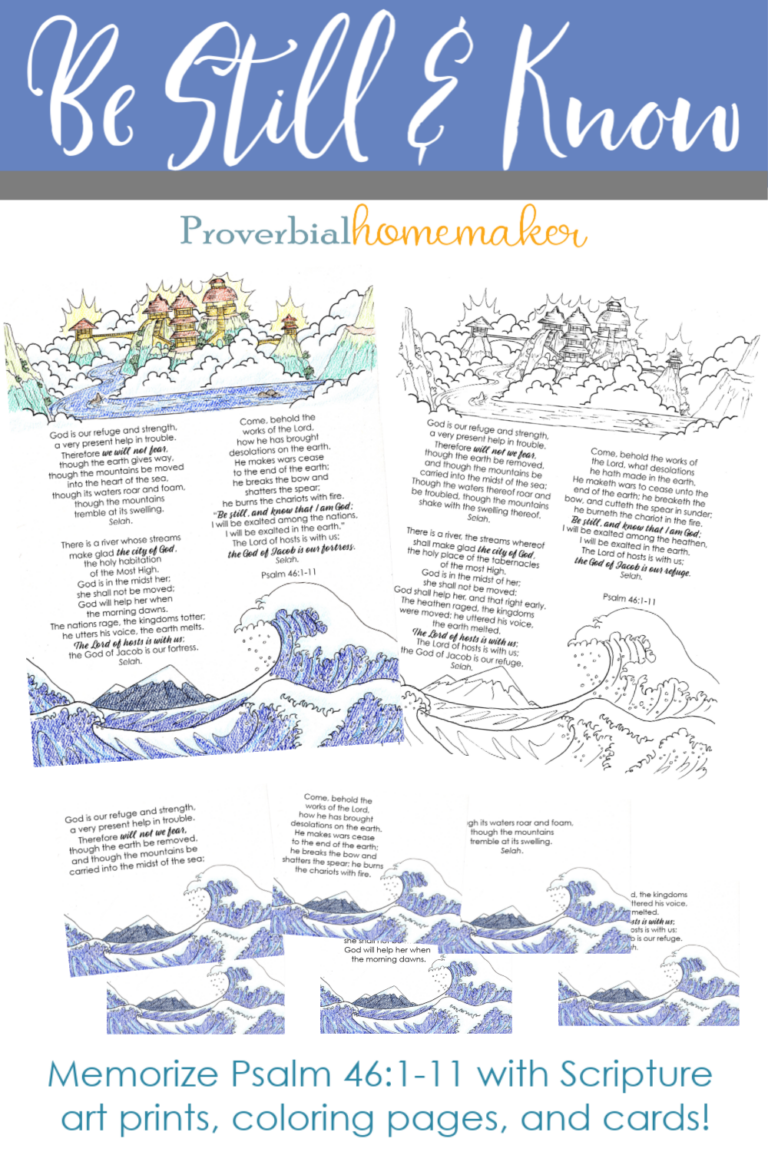 Be Still & Know
Proverbialhomemaker
God is our refuge and strength,
a very present help in trouble.
Therefore we will not fear,
though the earth gives way,
though the mountains be moved
into the heart of the sea,
though its waters roar and foam,
though the mountains
tremble at its swelling.
Selah.
There is a river whose streams
make glad the city of God,
the holy habitation
of the Most High.
God is in the midst of her;
she shall not be moved;
God will help her when
the morning dawns.
The nations rage, the kingdoms totter;
he utters his voice, the earth melts.
The Lord of hosts is with us;
the God of Jacob is our fortress.
Selah.
Come, behold the
works of the Lord,
how he has brought
desolations on the earth.
He makes wars cease
to the end of the earth;
he breaks the bow and
shatters the spear;
he burns the chariots with fire.
"Be still, and know that I am God;
I will be exalted among the nations,
I will be exalted in the earth."
The Lord of hosts is with us;
the God of Jacob is our fortress.
Selah.
Psalm 46:1-11
God is our refuge and strength,
a very present help in trouble.
Therefore will not we fear,
though the earth be removed,
and though the mountains be
carried into the midst of the sea;
Though the waters thereof roar and
be troubled, though the mountains
shake with the swelling thereof.
Selah.
There is a river, the streams whereof
shall make glad the city of God,
the holy place of the tabernacles
of the most High.
God is in the midst of her;
she shall not be moved:
God shall help her, and that right early.
The heathen raged, the kingdoms
were moved: he uttered his voice,
the earth melted.
The Lord of hosts is with us;
The Lord of hosts is with us;
the God of Jacob is our refuge.
Selah.
Come, behold the works of
the Lord, what desolations
he hath made in the earth.
He maketh wars to cease unto the
end of the earth; he breaketh the
bow, and cutteth the spear in sunder;
he burneth the chariot in the fire.
Be still, and know that I am God:
I will be exalted among the heathen,
I will be exalted in the earth.
The Lord of hosts is with us;
the God of Jacob is our refuge.
Selah.
Psalm 46:1-11
God is our refuge and strength,
a very present help in trouble.
Therefore will not we fear,
though the earth be removed,
and though the mountains be
carried into the midst of the sea;
Come, behold the
works of the Lord,
how he has brought
desolations on the earth.
He makes wars cease
to the end of the earth;
he breaks the bow and
shatters the spear; he burns
the chariots with fire.
gh its waters roar and foam,
though the mountains
tremble at its swelling.
Selah.
God will help her when
the morning dawns.
d, the kingdoms
ttered his voice,
melted.
sts is with us;
osts is with us;
b is our refuge.
h.
Memorize Psalm 46:1-11 with Scripture
art prints, coloring pages, and cards!